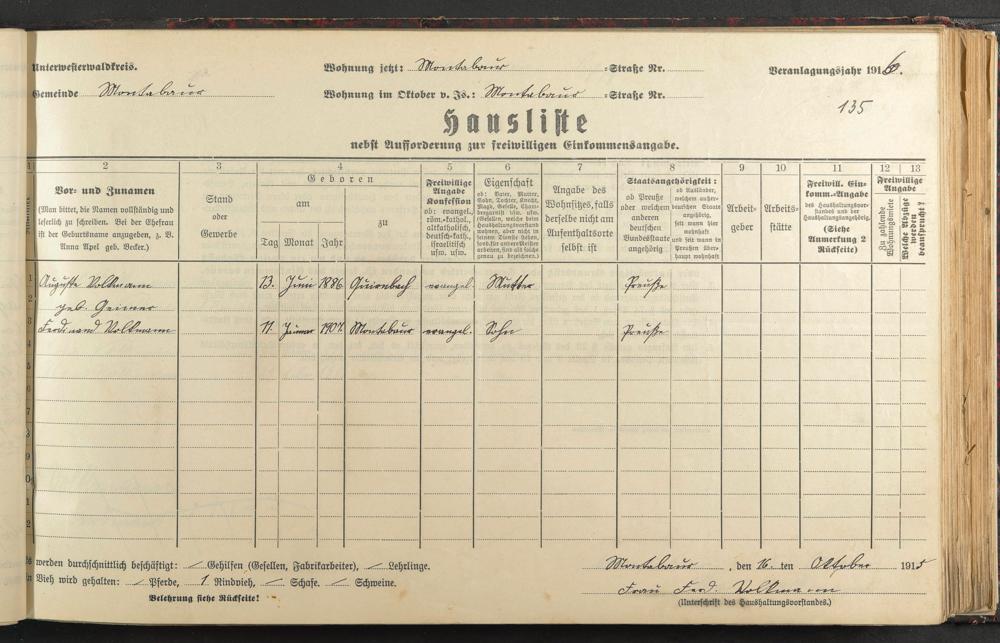 Unterwesterwaldkreis. Wohnung jetzt: Montabaur =Straße Nr. Veranlagungsjahr 1916.
Gemeinde Montabaur Wohnung im Oktober v. Js.: Montabaur =Straße Nr.
135
Hausliste
nebst Aufforderung zur freiwilligen Einkommensangabe.
2 3 4 5 6 7 8 9 10 11 12 13
Vor- und Zunamen
(Man bittet, die Namen vollständig und
leserlich zu schreiben. Bei der Ehefrau
ist der Geburtsname anzugeben, z. B.
Anna Apel geb. Becker.)
Stand
oder
Gewerbe
Geboren
am
Tag Monat Jahr
zu
Freiwillige
Angabe
Konfession
ob: evangel.,
röm.-kathol.,
altkatholisch,
deutsch-kath.,
israelitisch
usw. usw.
Eigenschaft
ob: Vater, Mutter,
Sohn, Tochter, Knecht,
Magd, Geselle, Cham-
bregarnist usw. usw.
(Gesellen, welche beim
Haushaltungsvorstand
wohnen, aber nicht in
seinem Dienste stehen,
sind als solche
genau zu bezeichnen.)
Angabe des
Wohnsitzes, falls
derselbe nicht am
Aufenthaltsorte
selbst ist
Staatsangehörigkeit:
ob Preuße
oder welchem
anderen
deutschen
Bundesstaate
angehörig
ob Ausländer,
welchem außer-
deutschen Staate
angehörig,
seit wann hier
wohnhaft
und seit wann in
Preußen über-
haupt wohnhaft
Arbeit-
geber
Arbeits-
stätte
Freiwill. Ein-
komm.-Angabe
des Haushaltungsvor-
standes und der
Haushaltungsangehörig.
(Siehe
Anmerkung 2
Rückseite)
Freiwillige
Angabe
Zu zahlende
Wohnungsmiete
Welche Abzüge
werden
beansprucht?
Auguste Volkmann 13. Juni 1886 Quirnbach evangel. Mutter Preuße
geb. Geimer
Ferdinand Volkmann 11. Januar 1907 Montabaur evangel. Sohn Preuße
werden durchschnittlich beschäftigt: Gehilfen (Gesellen, Fabrikarbeiter), Lehrlinge.
Vieh wird gehalten: Pferde, 1 Rindvieh, Schafe. Schweine.
Belehrung siehe Rückseite!
Montabaur, den 16. ten Oktober 1915
Frau Ferd. Volkmann
(Unterschrift des Haushaltungsvorstandes.)